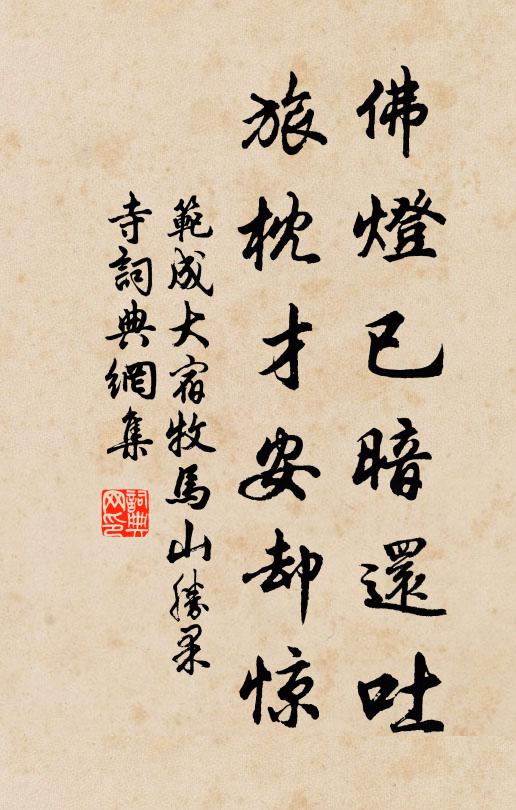 佛燈已暗還吐
旅枕才安却惊
範成大宿牧馬山勝果
寺詞典網集
詞典網印